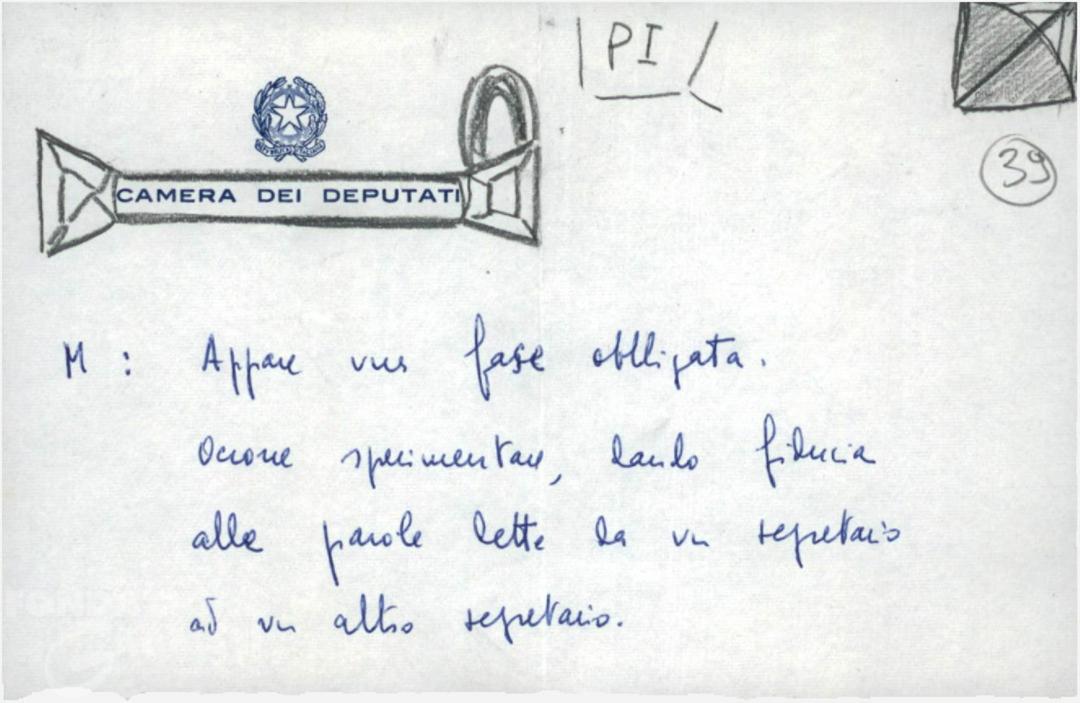 PI
39
CAMERA DEI DEPUTATI
M : Appare una fase obbligata.
Occorre sperimentare, dando fiducia
alle parole dette da un segretario
ad un altro segretario.